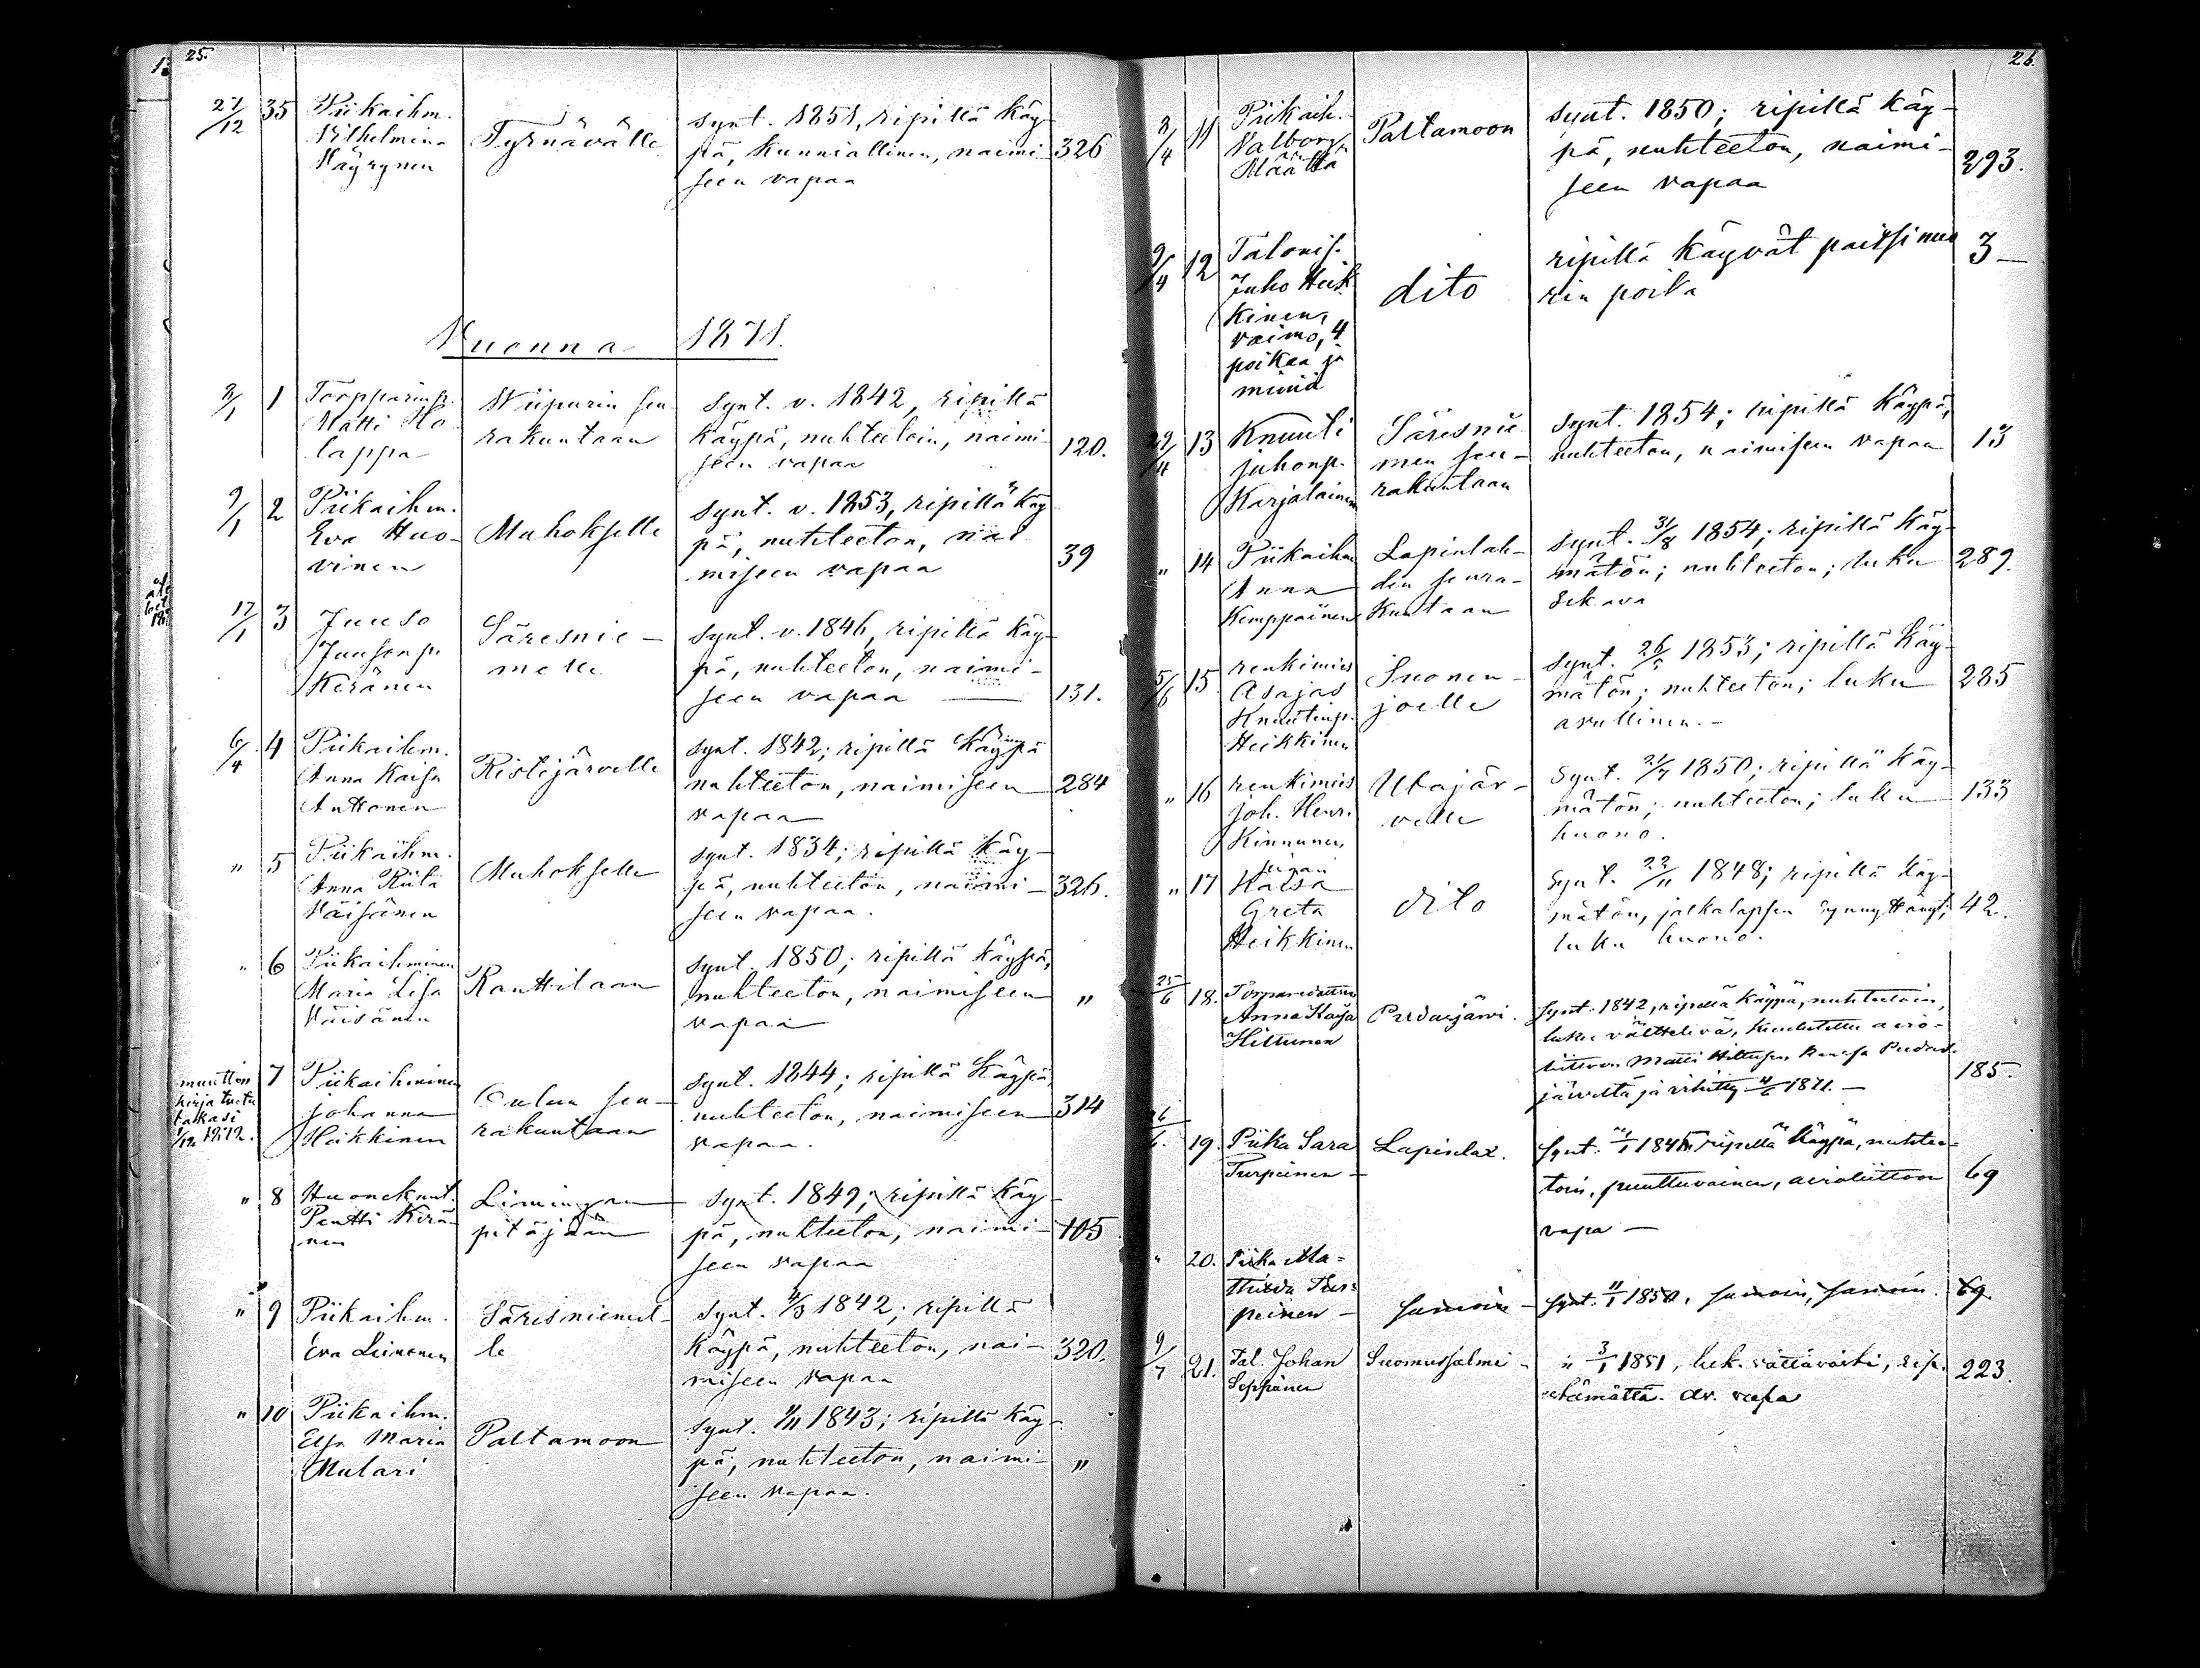 25.
27/12 35 Piikaihm. Wilhelmina Väyrynen Tyrnävälle synt. 1851, ripillä käy-
pä, kunniallinen, naimi- 326
seen vapaa
Vuonna 1871.
2/1 1 Torpparinp. Matti Ho-
lappa Wiipurin seu-
rakuntaan synt. v. 1842, ripillä
käypä, nuhteetoin, naimi- 120.
seen vapaa
9/1 2 Piikaihm. Eva Huo-
vinen Muhokselle synt. v. 1853, ripillä käy-
pä, nuhteeton, nai-
miseen vapaa 39
17/1 3 Juuso
Juusonp.
Keränen Säresnie-
melle synt. v. 1846, ripillä käy-
pä, nuhteeton, naimi-
seen vapaa 131.
6/4 4 Piikaihm.
Anna Kaisa
Anttonen Ristijärvelle synt. 1842; ripillä käypä
nuhteeton, naimiseen 284
vapaa
" 5 Piikaihm.
Anna Riita
Väisänen Muhokselle synt. 1834; ripillä käy-
pä, nuhteeton, naimi- 326.
seen vapaa.
" 6 Piikaihminen
Maria Lisa
Väisänen Ranttilaan synt. 1850; ripillä käypä,
nuhteeton, naimiseen "
vapaa
muutton
kirja tuotu
takasi
1/12 1872. 7 Piikaihminen
Johanna
Heikkinen Oulun seu-
rakuntaan synt. 1844; ripillä käypä,
nuhteeton, naimiseen 314
vapaa.
" 8 Huonekunt.
Pentti Kerä-
nen Limingan
pitäjään synt. 1849; ripillä käy-
pä, nuhteeton, naimi- 105
seen vapaa
" 9 Piikaihm.
Eva Leinonen Säresniemel-
le synt. 4/3 1842; ripillä
käypä, nuhteeton, nai- 320.
miseen vapaa
" 10 Piikaihm.
Elsa Maria
Mulari Paltamoon synt. 1/11 1843; ripillä käy-
pä, nuhteeton, naimi- "
seen vapaa.
26.
8/4 11 Piikaih.
Valborg
Määttä Paltamoon synt. 1850; ripillä käy-
pä, nuhteeton, naimi- 293.
seen vapaa
9/4 12 Talonis.
Juho Heik-
kinen,
vaimo, 4
poikaa ja
miniä dito ripillä käyvät paitsi nuo
rin poika 3
22/4 13 Knuuti
Juhonp.
Karjalainen Säresnie
men seu-
rakuntaan synt. 1854; ripillä käypä,
nuhteeton, naimiseen vapaa 13
" 14 Piikaihm
Anna
Kemppainen Lapinlah-
den seura-
kuntaan synt. 31/8 1854; ripillä käy-
mätön; nuhteeton; luku 289.
sekava
5/6 15 renkimies
Asajas
Knuutinp.
Heikkinen Suonen-
joelle synt. 26/5 1853; ripillä käy-
mätön; nuhteeton; luku 285
avullinen.-
" 16 renkimies
Joh. Henr.
Kinnunen Utajär-
velle synt. 21/7 1850; ripillä käy-
mätön; nuhteeton; luku 133
huono.
" 17 Kaisa
Greta
Heikkinen dito synt. 22/11 1848; ripillä käy-
mätön, jalkalapsen synnyttänyt; 42.
luku huono.
25/6 18. Anna Kaisa
Hiltunen Pudasjärvi. synt. 1842, ripillä käypä, nuhteetoin,
luku välttelivä, kuulutettu avio-
liittoon Matti Hiltusen kanssa Pudas-
järveltä ja vihitty 1871. - 185.
19. Piika Sara
Turpeinen - Lapinlax. synt. 184 ripillä käypä, nuhtee-
toin, puuttuvainen, avioliittoon 69
vapa -
" 20. Piika Ma-
thilda Tur-
peinen - samoin - synt. 11/1 1850, samoin, samoin. 69
9/7 21. Tal. Johan
Seppänen Suomussalmi - " 3/1 1851, luk. välttävästi, rip. 223.
-ämättä. av. vapa